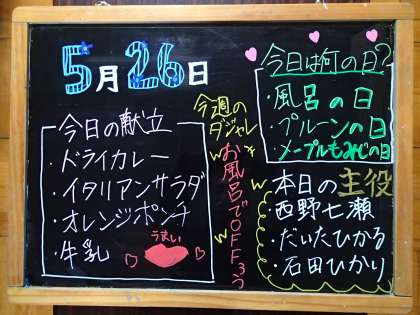 5月26日
今日の献立
・ドライカレー
・イタリアンサラダ
・オレンジポンチ
・牛乳
うまい
今週の
ダジャレ
お風呂でOFFろう
今日は何の日?
・風呂の日
・プルーンの日
・メープルもみじの日
本日の主役
・西野七瀬
・だいたひかる
・石田ひかり